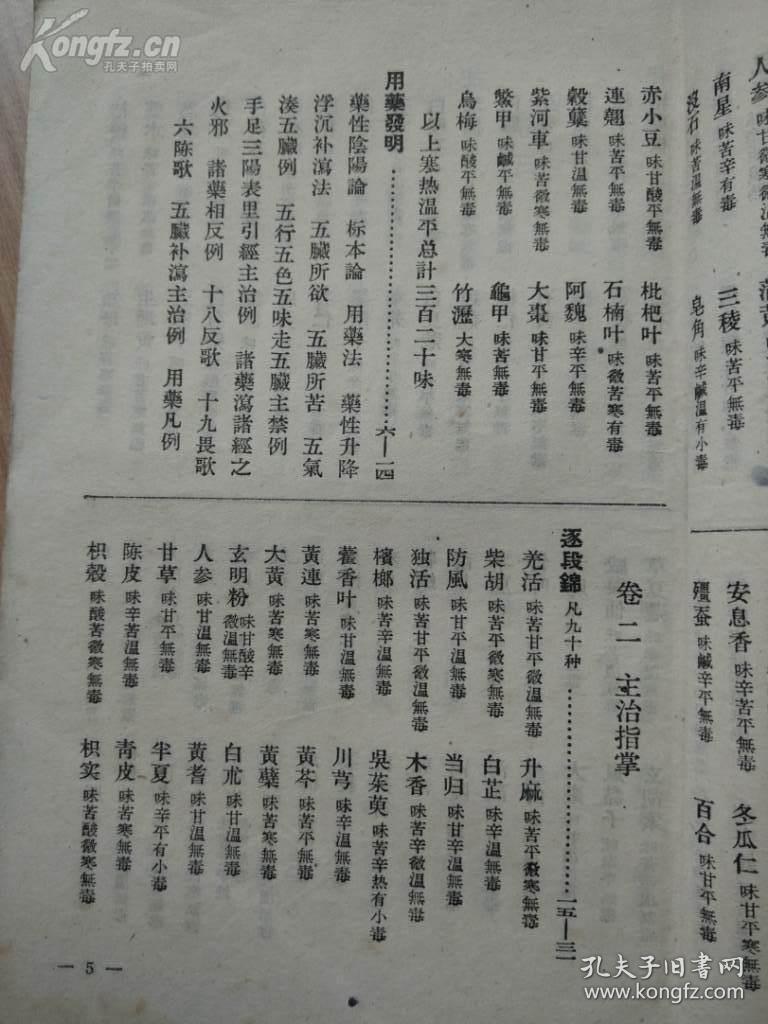 Kongfz.cn
孔夫子拍卖网
南星 味苦辛有毒 三稜 味苦平無毒
沒石 味苦温無毒 皂角 味辛鹹温有小毒
赤小豆 味甘酸平無毒 枇杷叶 味苦平無毒
連翹 味苦平無毒 石楠叶 味微苦寒有毒
穀蘖 味甘温無毒 阿魏 味辛平無毒
紫河車 味苦微寒無毒 大棗 味甘平無毒
鱉甲 味鹹平無毒 龜甲 味苦無毒
烏梅 味酸平無毒 竹瀝 大寒無毒
以上寒热温平总計三百二十味
用藥發明……六—一四
藥性陰陽論 标本論 用藥法 藥性升降
浮沉补瀉法 五臟所欲 五臟所苦 五氣
湊五臟例 五行五色五味走五臟主禁例
手足三陽表里引經主治例 諸藥瀉諸經之
火邪 諸藥相反例 十八反歌 十九畏歌
六陈歌 五臟补瀉主治例 用藥凡例
安息香 味辛苦平無毒 冬瓜仁 味甘平寒無毒
殭蚕 味鹹辛平無毒 百合 味甘平無毒
卷二 主治指掌
逐段錦 凡九十种……一五—三一
羌活 味苦甘平微温無毒 升麻 味苦平微寒無毒
柴胡 味苦平微寒無毒 白芷 味辛温無毒
防風 味甘辛温無毒 当归 味甘辛温無毒
独活 味苦甘平微温無毒 木香 味苦辛微温無毒
檳榔 味苦辛温無毒 吳茱萸 味苦辛热有小毒
藿香叶 味甘温無毒 川芎 味辛温無毒
黃連 味苦寒無毒 黃芩 味苦平無毒
大黃 味苦寒無毒 黃蘗 味苦寒無毒
玄明粉 味甘酸辛微温無毒 白朮 味甘温無毒
人参 味甘温無毒 黃耆 味甘温無毒
甘草 味甘平無毒 半夏 味辛平有小毒
陈皮 味辛苦温無毒 青皮 味苦寒無毒
枳殼 味酸苦微寒無毒 枳实 味苦酸微寒無毒
— 5 —
孔夫子旧书网
www.kongfz.com